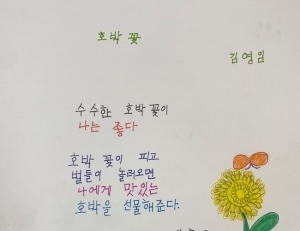 호박 꽃
김영임
수수한 호박꽃이
나는 좋다
호박 꽃이 피고
벌들이 놀러오면
나에게 맛있는
호박을 선물해준다.